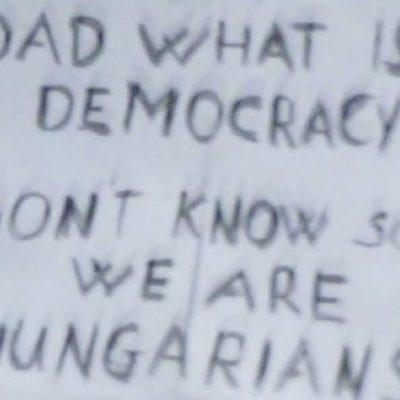 DAD WHAT IS
DEMOCRACY
DON'T KNOW SO
WE ARE
HUNGARIANS